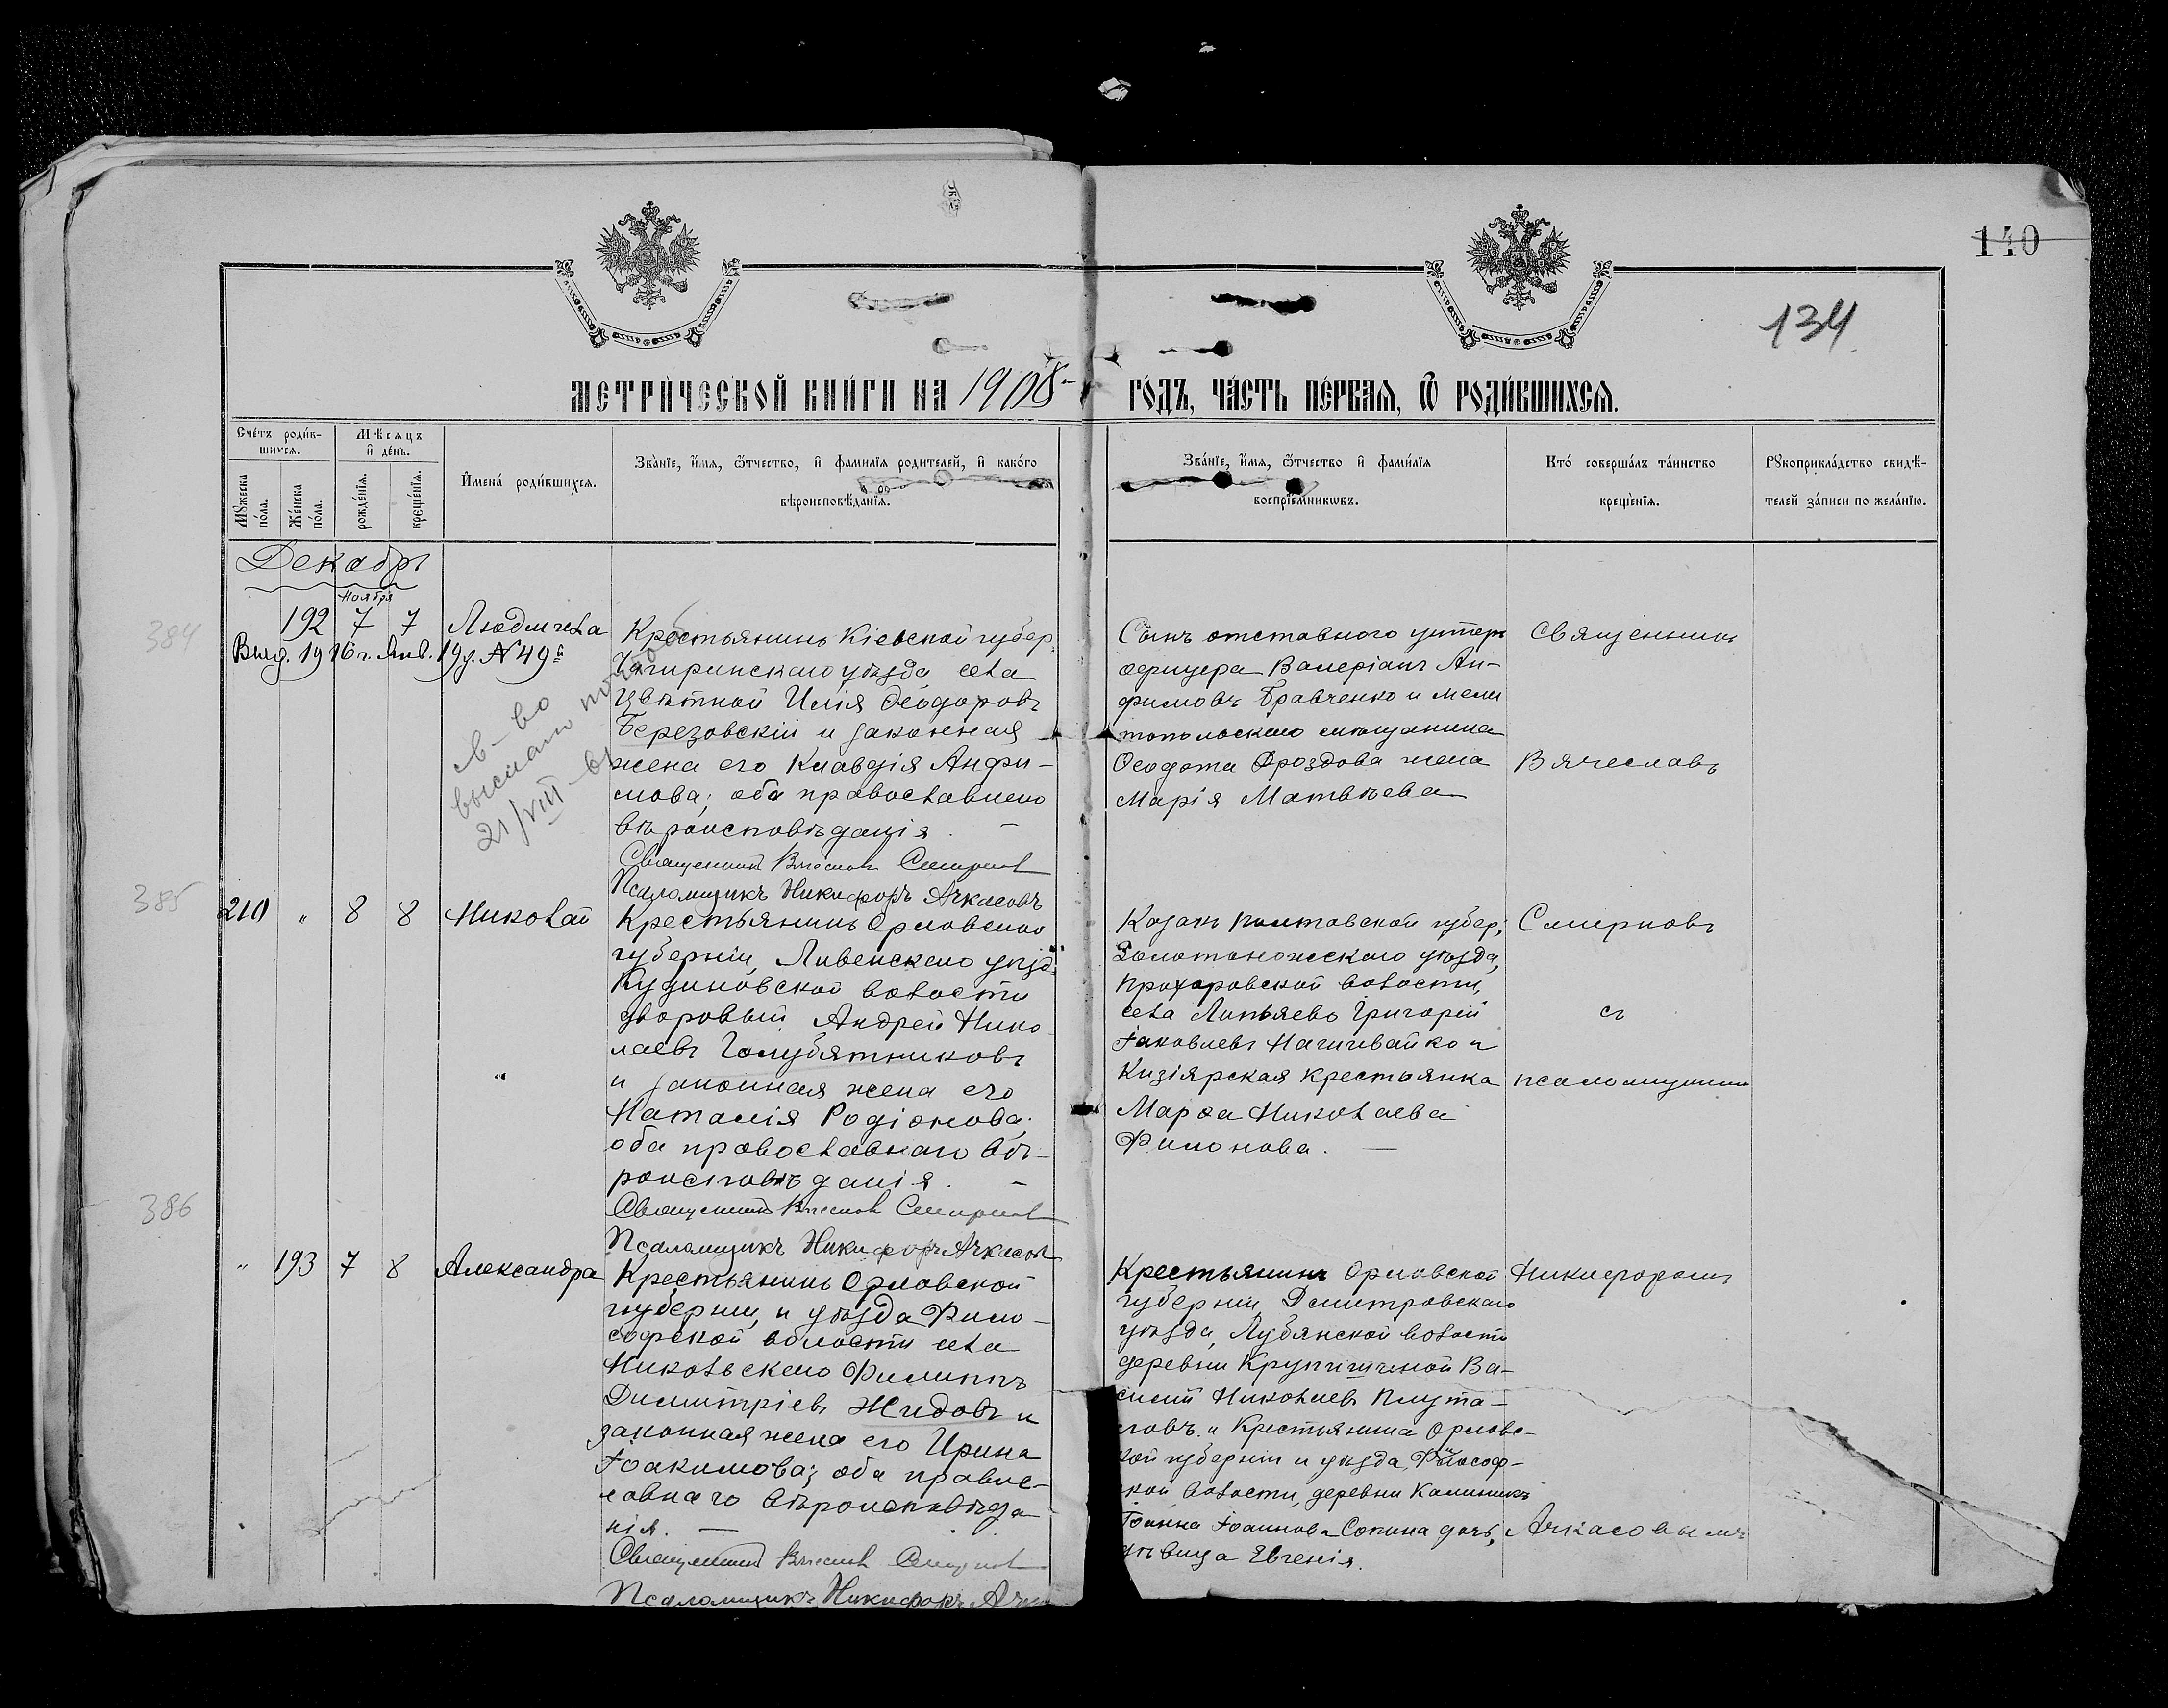 140
134
МЕТРИ́ЧЕСКОЙ КНИ́ГИ НА 1908 ГО́ДЪ, ЧА́СТЬ ПЕ́РВАЯ, Ѿ РОДИ́ВШИХСЯ.
Сче́тъ роди́в-
шихся.
Му́жеска
по́ла.
Же́нска
по́ла.
Мѣ́сяцъ
и҆ де́нь.
рожде́нїя.
креще́нїя.
И҆мена̀ роди́вшихся.
Зва́нїе, и҆́мя, ѻ҆́тчество, и҆ фами́лїя роди́телей, и҆ како́го
вѣроисповѣ́данїя.
Зва́нїе, и҆́мя, ѻ҆́тчество и҆ фами́лїя
воспрїе́мникѡвъ.
Кто̀ соверша́лъ та́инство
креще́нїя.
Рꙋкоприкла́дство свидѣ́-
телей за́писи по жела́нїю.
Декабрь
Ноября
384
192 7 7 Людмила
Выд. 1916 г. Янв. 19 д. № 49
св-во
выслано
21/VIII
Крестьянинъ Кіевской губер.
Чигиринскаго уѣзда села
Цвѣтной Илія Ѳеодоровъ
Березовскій и законная
жена его Клавдія Анфи-
мова; оба православнаго
вѣроисповѣданія. —
Священникъ Вячеславъ Смирновъ
Псаломщикъ Никифоръ Ачкасовъ
Сынъ отставного унтеръ
офицера Валеріанъ Ан-
фимовъ Кравченко и мели
топольскаго мѣщанина
Ѳеодота Дроздова жена
Марія Матвѣева
Священникъ
Вячеславъ
385
210 " 8 8 Николай
Крестьянинъ Орловской
губерніи, Ливенскаго уѣзд.
волости
дворовый Андрей Нико-
лаевъ Голубятниковъ
и законная жена его
Наталія Родіонова;
оба православнаго вѣ-
роисповѣданія. —
Священникъ Вячеславъ Смирновъ
Псаломщикъ Никифоръ Ачкасовъ
Козакъ Полтавской губер.,
Золотоношскаго уѣзда,
Прохоровской волости,
села Липляево Григорій
Іаковлевъ и
Кизіярская крестьянка
Марѳа Николаева
Филонова. —
Смирновъ
съ
псаломщикомъ
386
" 193 7 8 Александра
Крестьянинъ Орловской
губерніи, и уѣзда Фило-
софской волости села
Никольскаго Филиппъ
Димитріевъ Жидовъ и
законная жена его Ирина
Іоакимова; оба правос-
лавнаго вѣроисповѣда-
нія. —
Священникъ Вячеславъ Смирновъ
Псаломщикъ Никифоръ
Крестьянинъ Орловской
губерніи, Дмитровскаго
уѣзда, Лубянской волости
деревни Крупышиной Ва-
силій Николаевъ Плута-
ловъ и Крестьянина Орловс-
кой губерніи и уѣзда, Философ-
кой волости, деревни
Іоанна Іоаннова Сопина дочь,
дѣвица Евгенія.
Никифоромъ
Ачкасовымъ